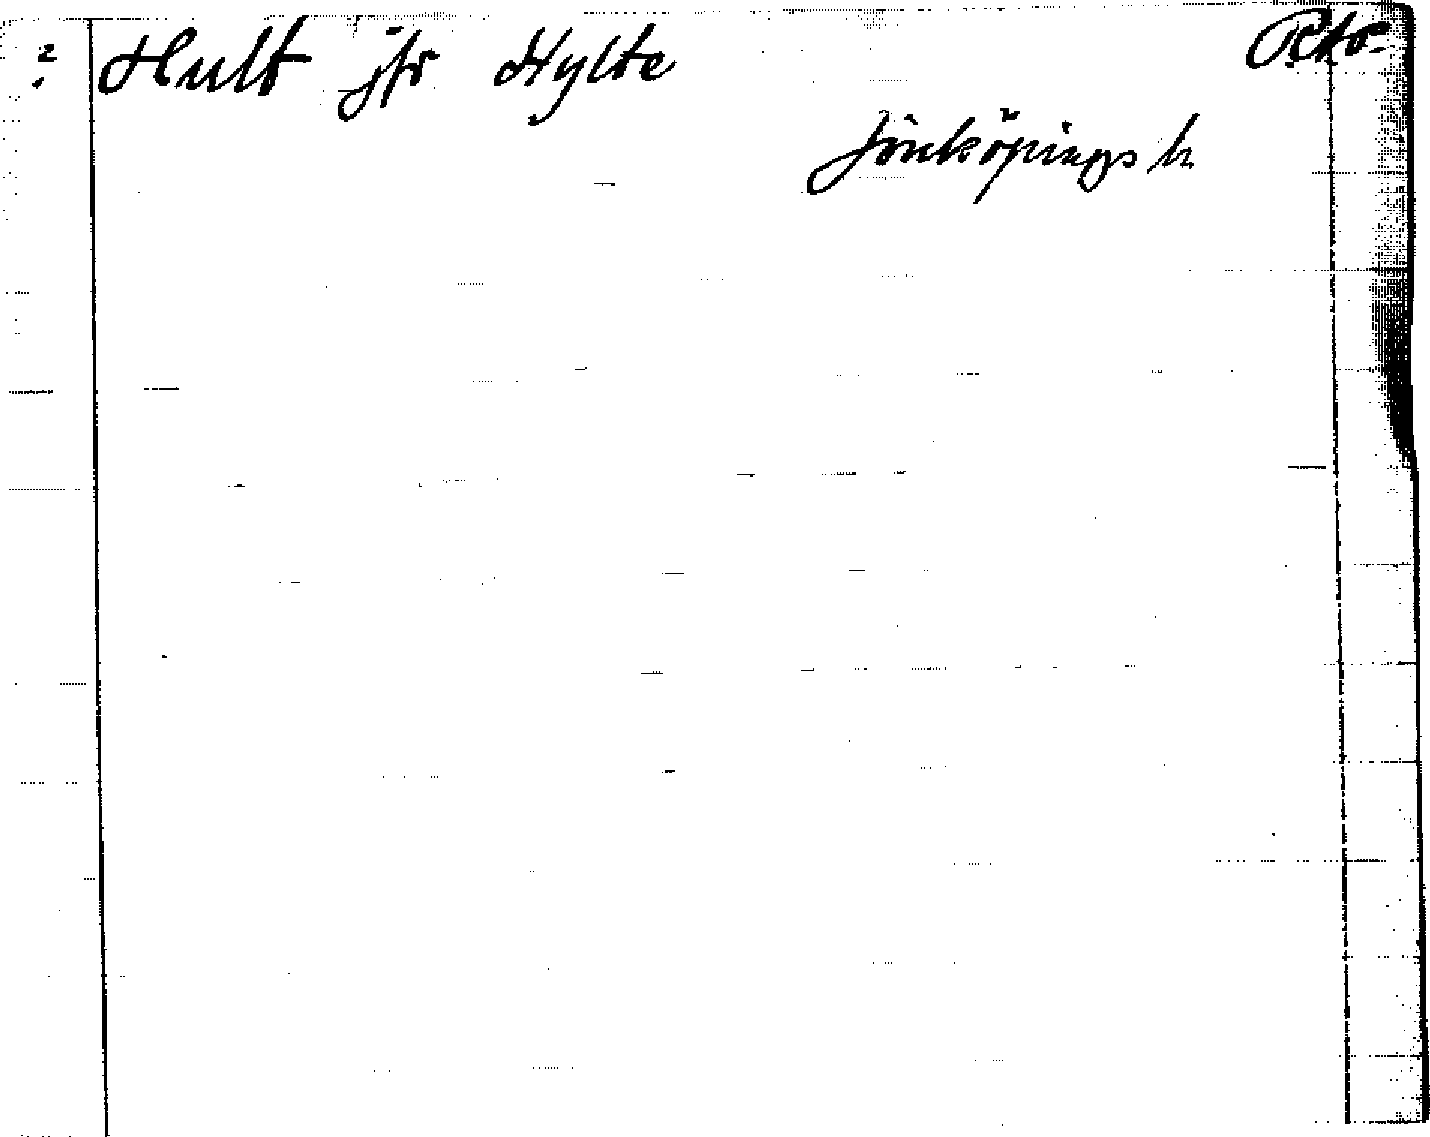 ? Hult jfr Hylte
Jönköpings h